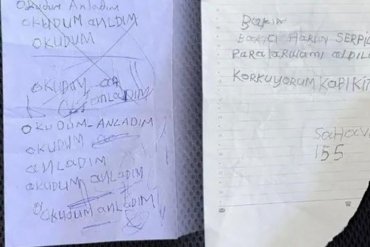 Okudum Anladım
OKUDUM ANLDIM
OKUDUM
OKUDUM
ANLADIM
OKUDUM-ANLADIM
OKUDUM
ANLADIM
OKUDUM ANLADIM
OKUDUM ANLADIM
Bakın
SERPİL
PARALARIMI ALDILA
KORKUYORUM KAPI KİT
155